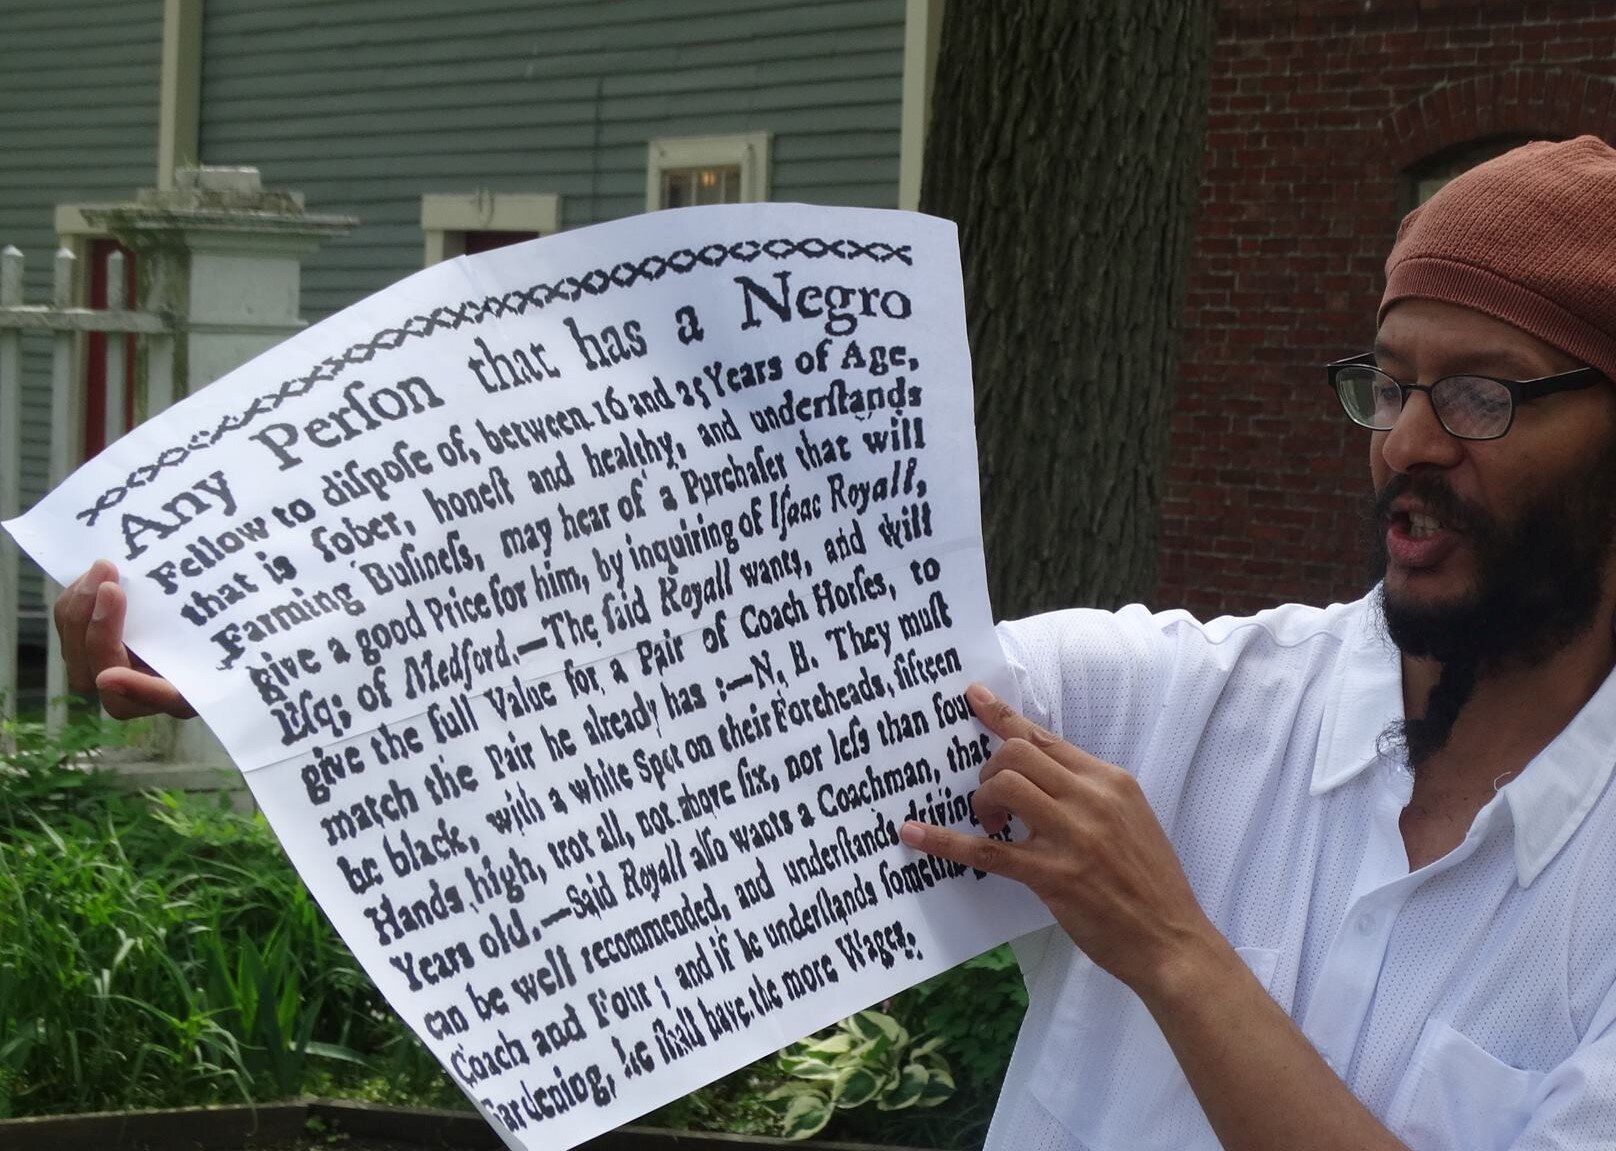 Any Perſon that has a Negro
Fellow to diſpoſe of, between 16 and 25 Years of Age,
that is ſober, honeſt and healthy, and underſtands
Farming Buſineſs, may hear of a Purchaſer that will
give a good Price for him, by inquiring of Iſaac Royall,
Eſq; of Medford.—The ſaid Royall wants, and will
give the full Value for a Pair of Coach Horſes, to
match the Pair he already has :—N. B. They muſt
be black, with a white Spot on their Foreheads, fifteen
Hands high, trot all, not above ſix, nor leſs than four
Years old.—Said Royall alſo wants a Coachman, that
can be well recommended, and underſtands driving
Coach and Four ; and if he underſtands ſomething
Gardening, he ſhall have the more Wages.